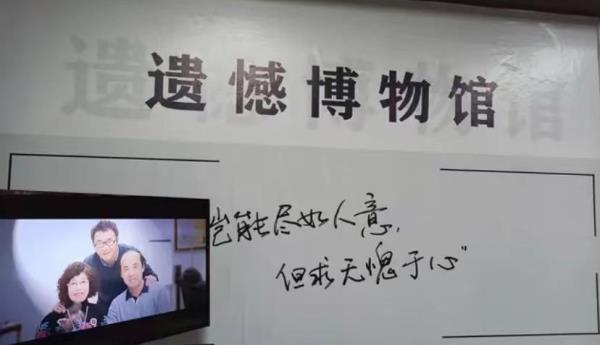 遗憾博物馆
岂能尽如人意,
但求无愧于心”